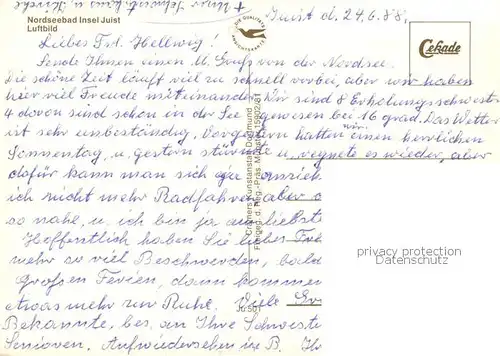 + Ihre Schwester
Nordseebad Insel Juist
Luftbild
Juist d. 24.6.88.
DIE QUALITÄTS
ANSICHTSKARTE
Cekade
Liebes Frl. Hellwig!
Sende Ihnen einen lb. Gruß von der Nordsee.
Die schöne Zeit läuft viel zu schnell vorbei, aber wir haben
hier viel Freude miteinander. Wir sind 8 Erholungsschwest.
4 davon sind schon in der See gewesen bei 16 grad. Das Wetter
ist sehr unbeständig. Vorgestern hatten wir einen herrlichen
Sonnentag, u. gestern stürmte u. regnete es wieder, aber
dafür kann man sich ja anzieh
ich nicht mehr Radfahren, aber
so nahe, u. ich bin ja am liebst
Hoffentlich haben Sie liebes Frl
mehr so viel Beschwerden, bald
Großen Ferien, dann kommen
etwas mehr zur Ruhe. Viele Gr
Bekannte, bes. an Ihre Schweste
Senioren. Aufwiedersehen in B. Ihr
Cramers Kunstanstalt Dortmund
Ju 501
privacy protection
Datenschutz